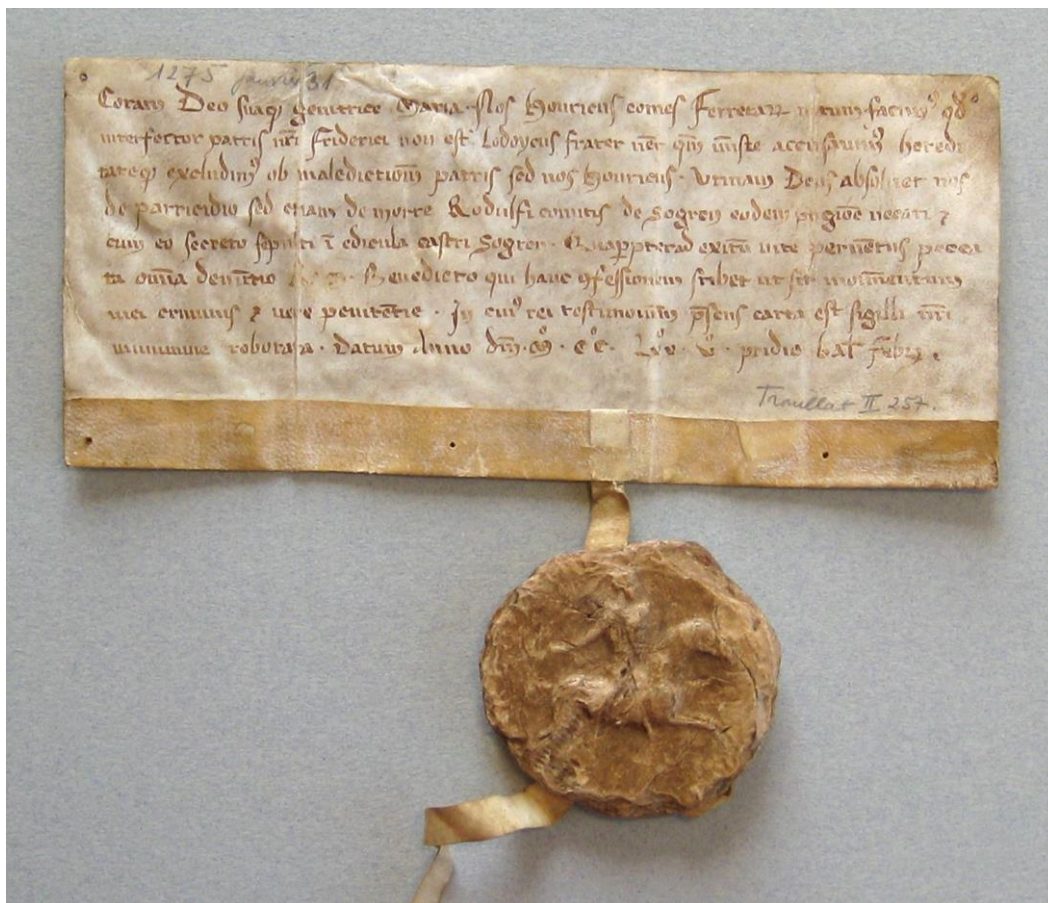 1275 janvier 31
Coram Deo suaq; genitrice Maria. Nos Henricus comes Ferretar̃ notum facim᷒ qđ
interfector patris nr̃i Friderici non est Lodoycus frater nr̃ q̃m iniuste accusauim᷒ heredi
tateq; excludim᷒ ob maledictiom̃ patris sed nos Henricus. Utinam Deus absoluet nos
de parricidio sed etiam de morte Rodulfi comitis de Sogren eodem pugiõe necati ⁊
cum eo secreto sepulti ĩ edicula castri Sogren. Quapp̱ter ad exitũ uite peruẽtus pecca
ta om̃ia denũtio Benedicto qui hanc ꝯfessionem scribet ut sit monumentum
mei criminis ⁊ vere penitẽtie. In cui᷒ rei testimonium p̃sens carta est sigilli nr̃i
munimine roborata. Datum Anno dñi. Mͦ. CͦCͦ. LXXͦ. Vͦ. pridie kal̃ febr̃.
Trouillat II 257.